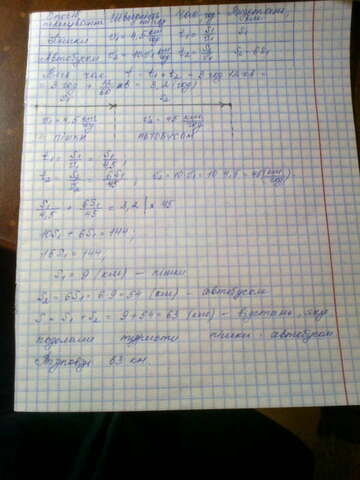 Спосіб Швидкість, Час, год Відстань,
пересування км/год км
Пішки v₁ = 4,5 км/год t₁ = S₁/v₁ S₁
Автобусом v₂ = 10v₁ км/год t₂ = S₂/v₂ S₂ = 6S₁
час t = t₁ + t₂ = 3 год 12 хв =
= 3 год + 12/60 = 3,2 (год)
S₁ S₂
v₁ = 4,5 км/год v₂ = 45 км/год
пішки автобусом
t₁ = S₁/v₁ = S₁/4,5;
t₂ = S₂/v₂ = 6S₁/45; v₂ = 10v₁ = 10·4,5 = 45 (км/год).
S₁/4,5 + 6S₁/45 = 3,2 | × 45
10S₁ + 6S₁ = 144,
16S₁ = 144,
S₁ = 9 (км) – пішки
S₂ = 6S₁ = 6·9 = 54 (км) – автобусом
S = S₁ + S₂ = 9 + 54 = 63 (км) – відстань, яку
подолали туристи пішки і автобусом
Відповідь 63 км.